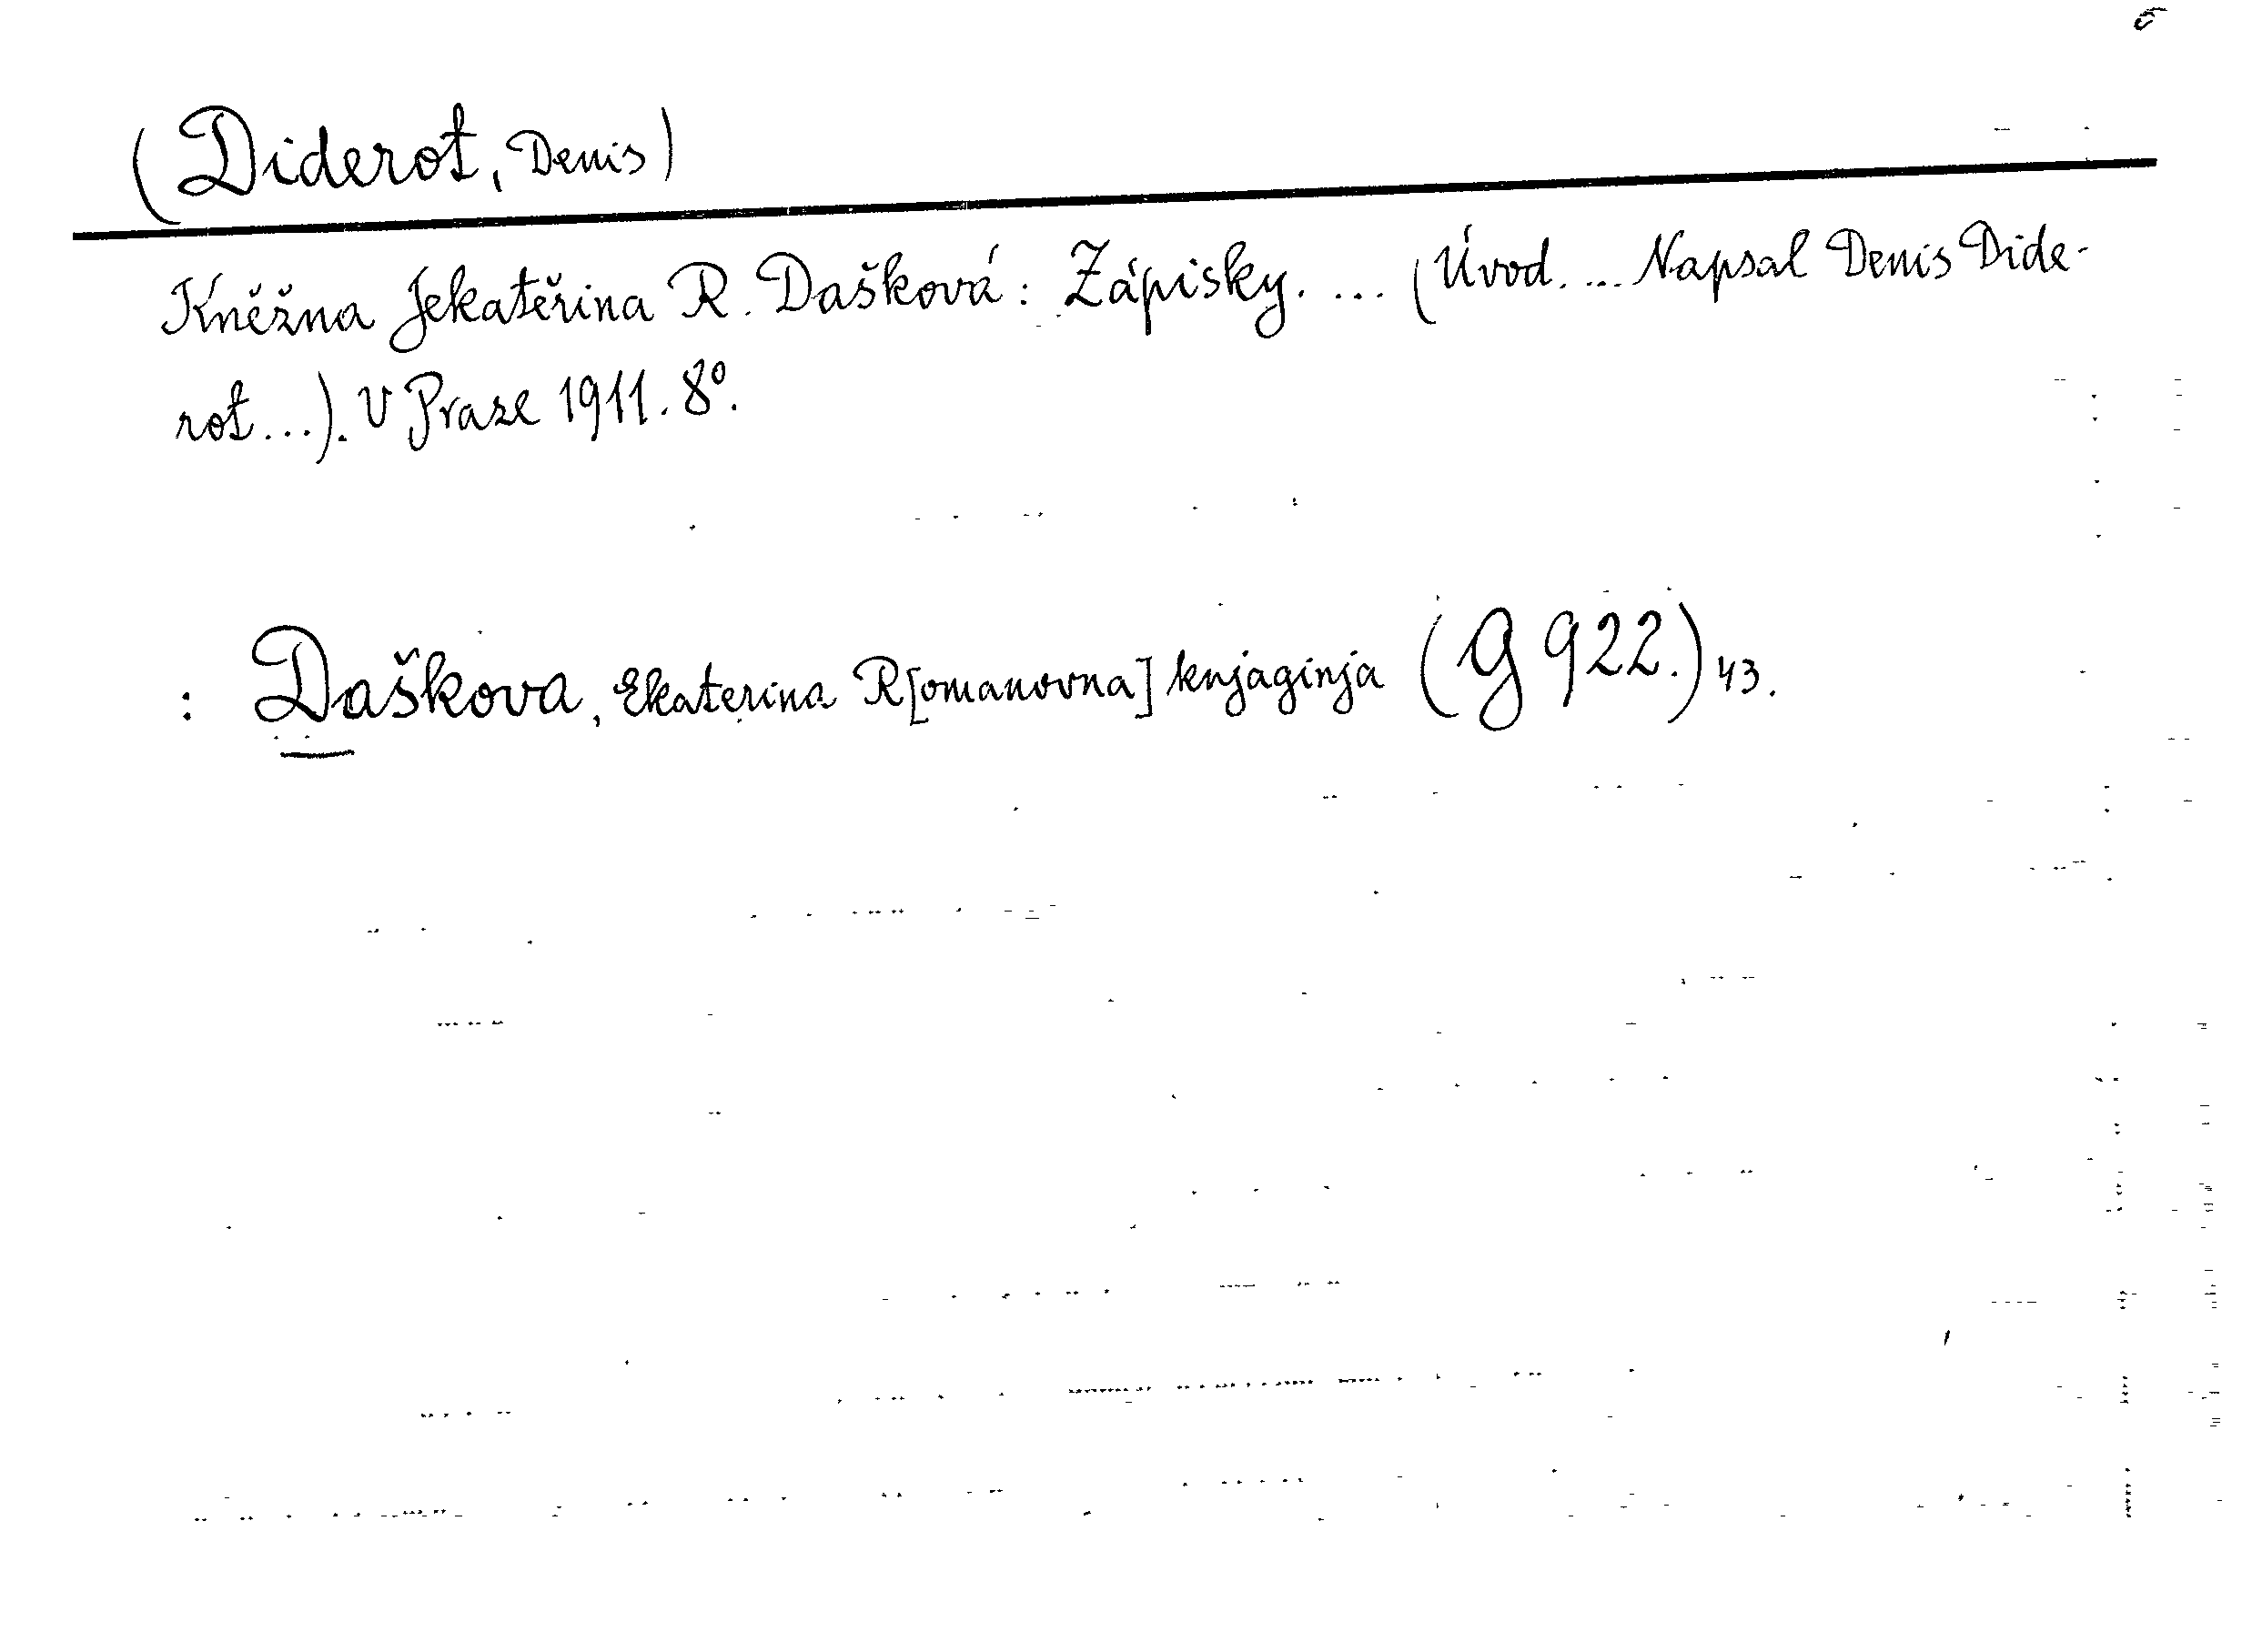 (Diderot, Denis)
Kněžna Jekatěřina R. Dašková: Zápisky. ... (Úvod. ... Napsal Denis Dide-
rot...). V Praze 1911. 8°.
: Daškova, Ekaterina R[omanovna] knjaginja (G 922.) 43.